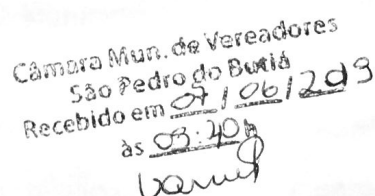 Câmara Mun. de Vereadores
São Pedro do Butiá
Recebido em 07 / 06 / 2019
às 09:20 h